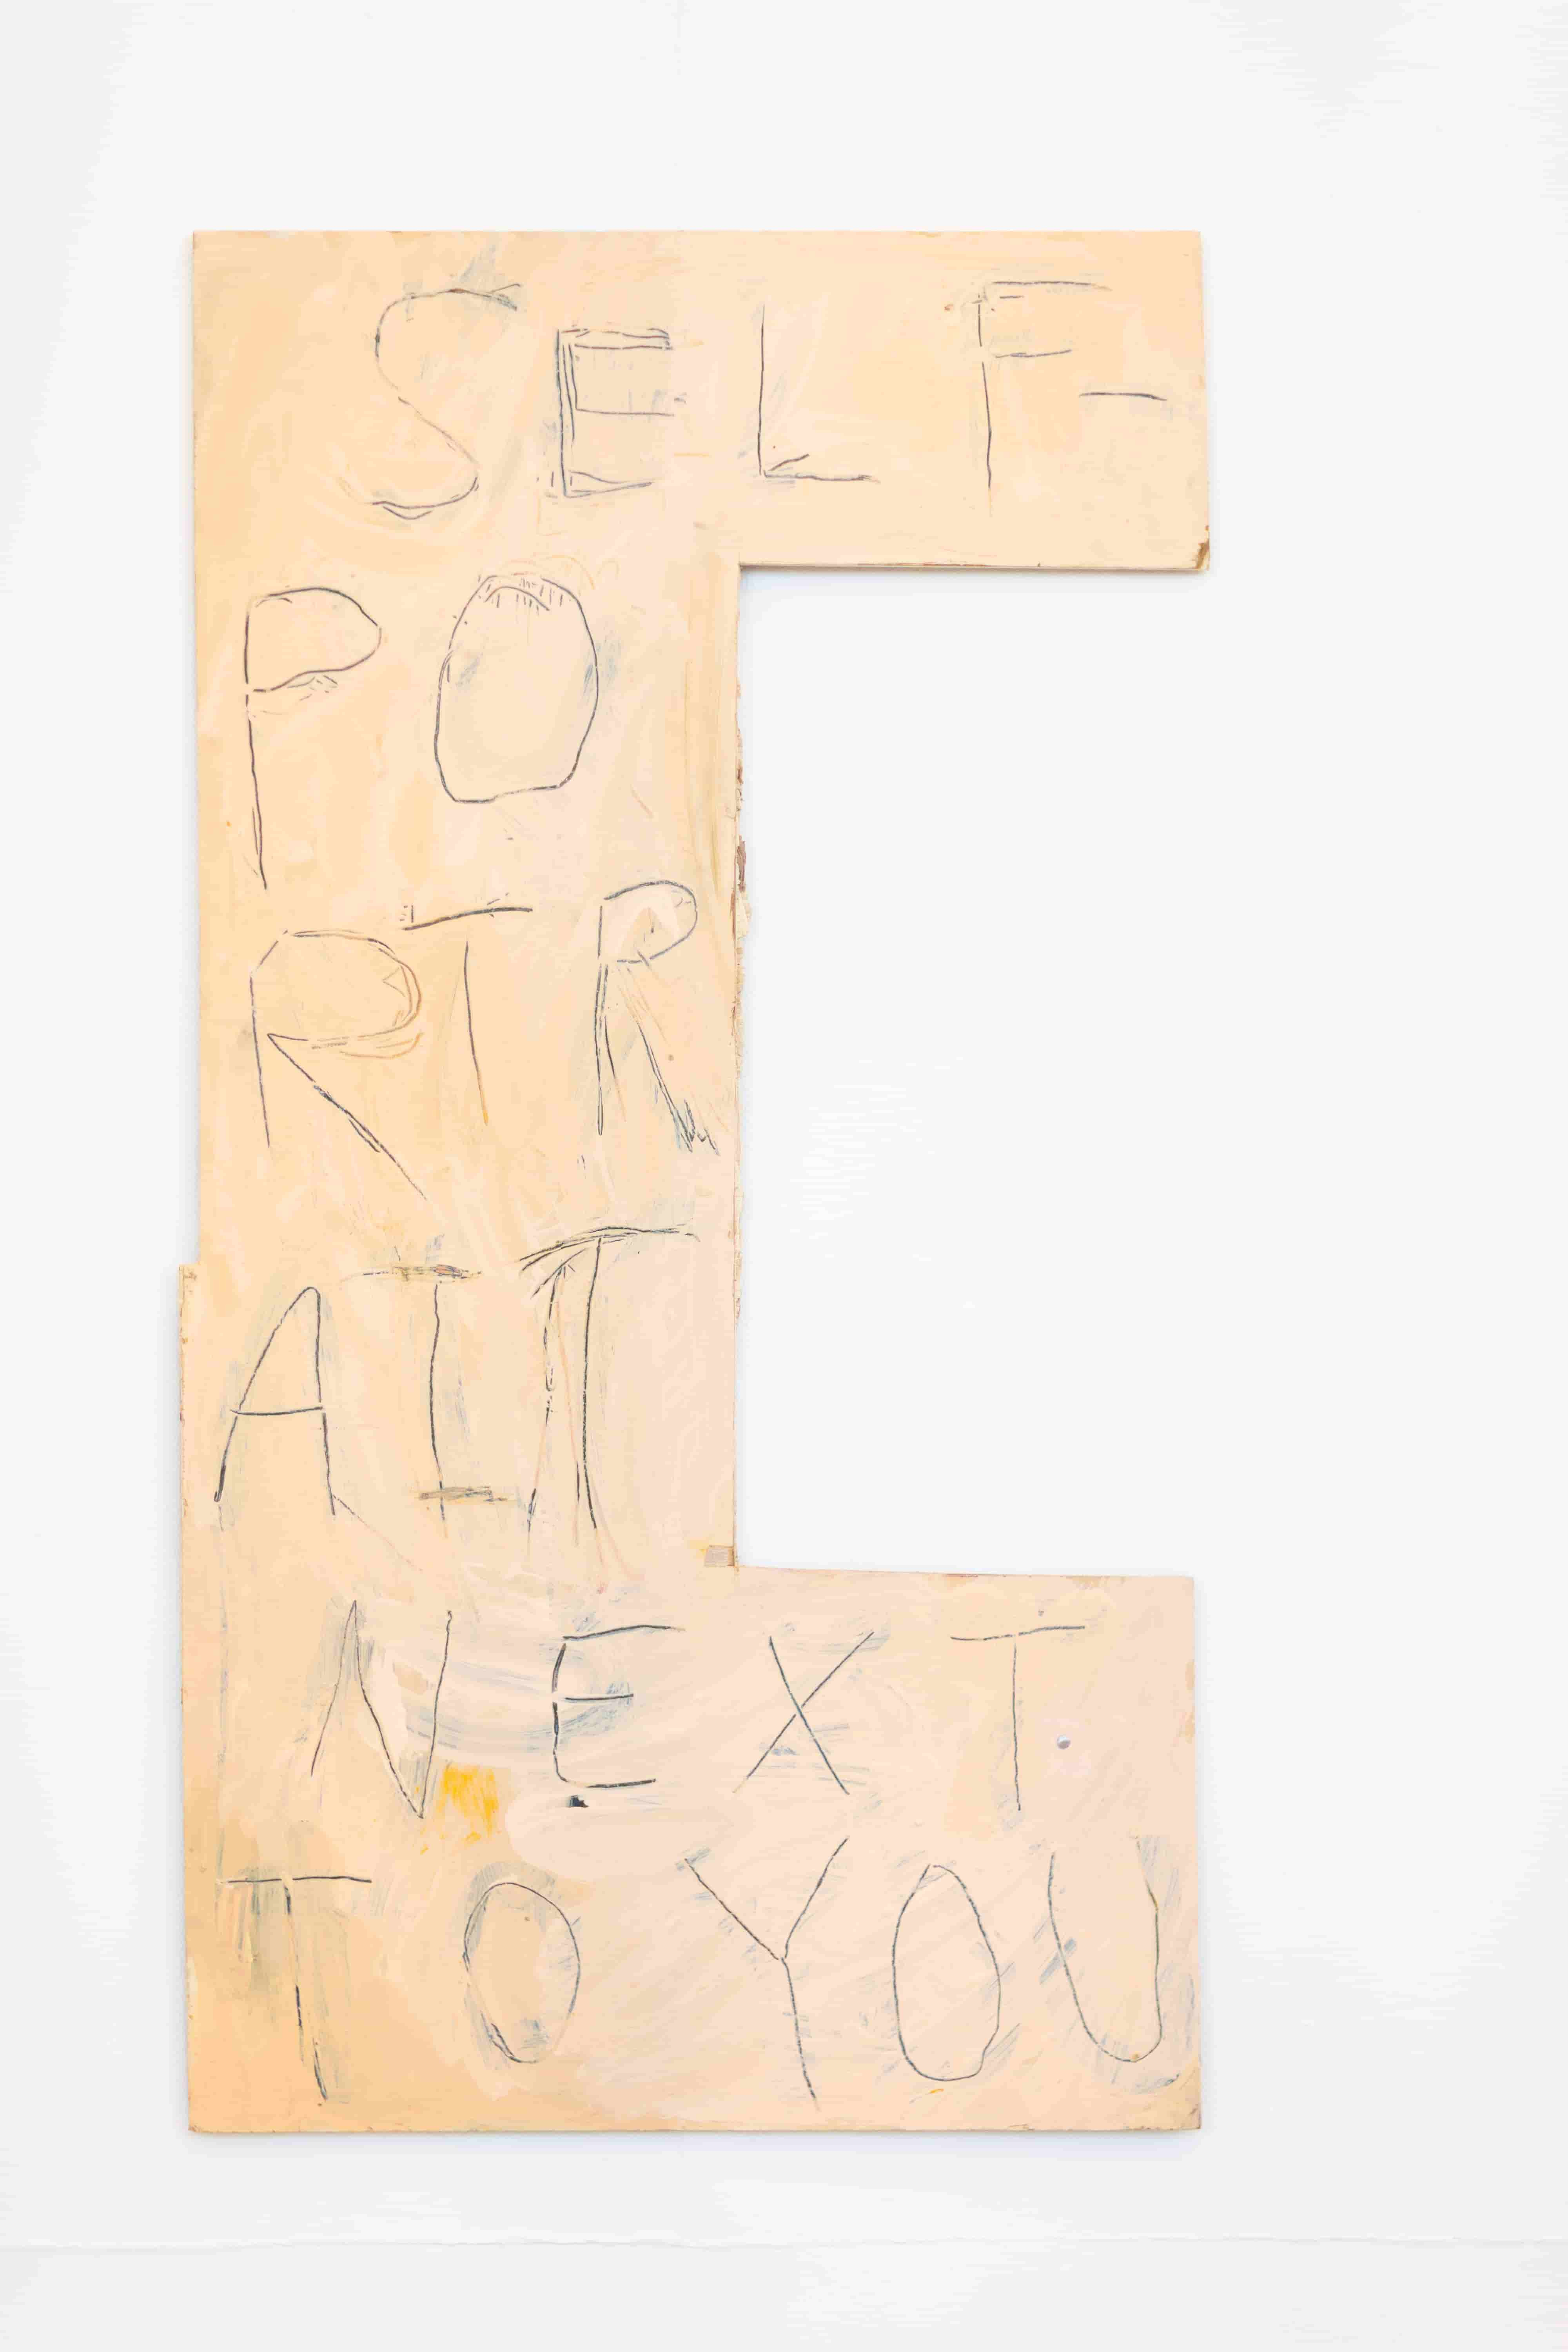 SELF-
PO
RTR
AIT
NEXT
TO YOU